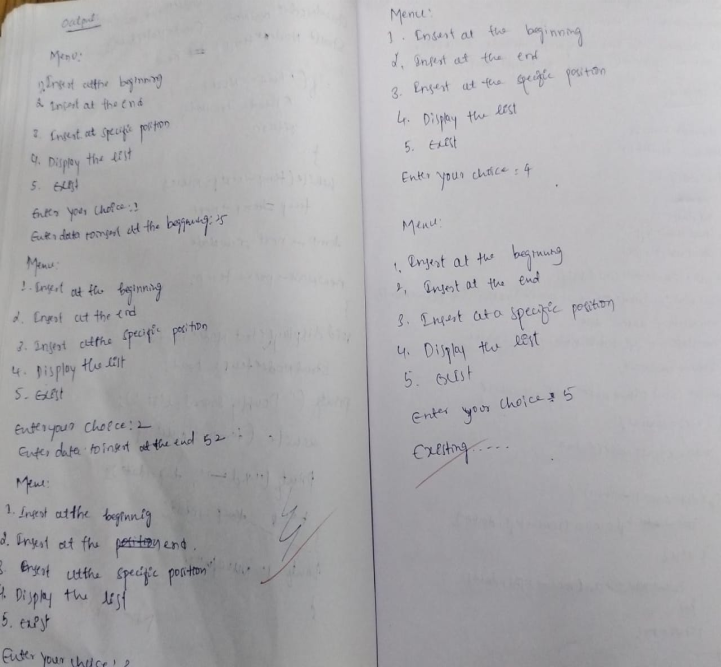 Output:
Menu:
1. Insert at the beginning
2. Insert at the end
3. Insert at specific position
4. Display the list
5. Exist
Enter your choice: 1
Enter data to insert at the beggning: 5
Menu:
1. Insert at the beginning
2. Insert at the end
3. Insert at the specific position
4. Display the list
5. Exist
Enter your choice: 2
Enter data to insert at the end 52
Menu:
1. Insert at the beginnig
2. Insert at the end.
3. Insert at the specific position
4. Display the list
5. exist
Enter your choice:
Menu:
1. Insert at the beginning
2. Insert at the end
3. Insert at the specific position
4. Display the list
5. Exist
Enter your choice: 4
Menu:
1. Insert at the beginning
2. Insert at the end
3. Insert at a specific position
4. Display the list
5. Exist
Enter your choice: 5
Existing....